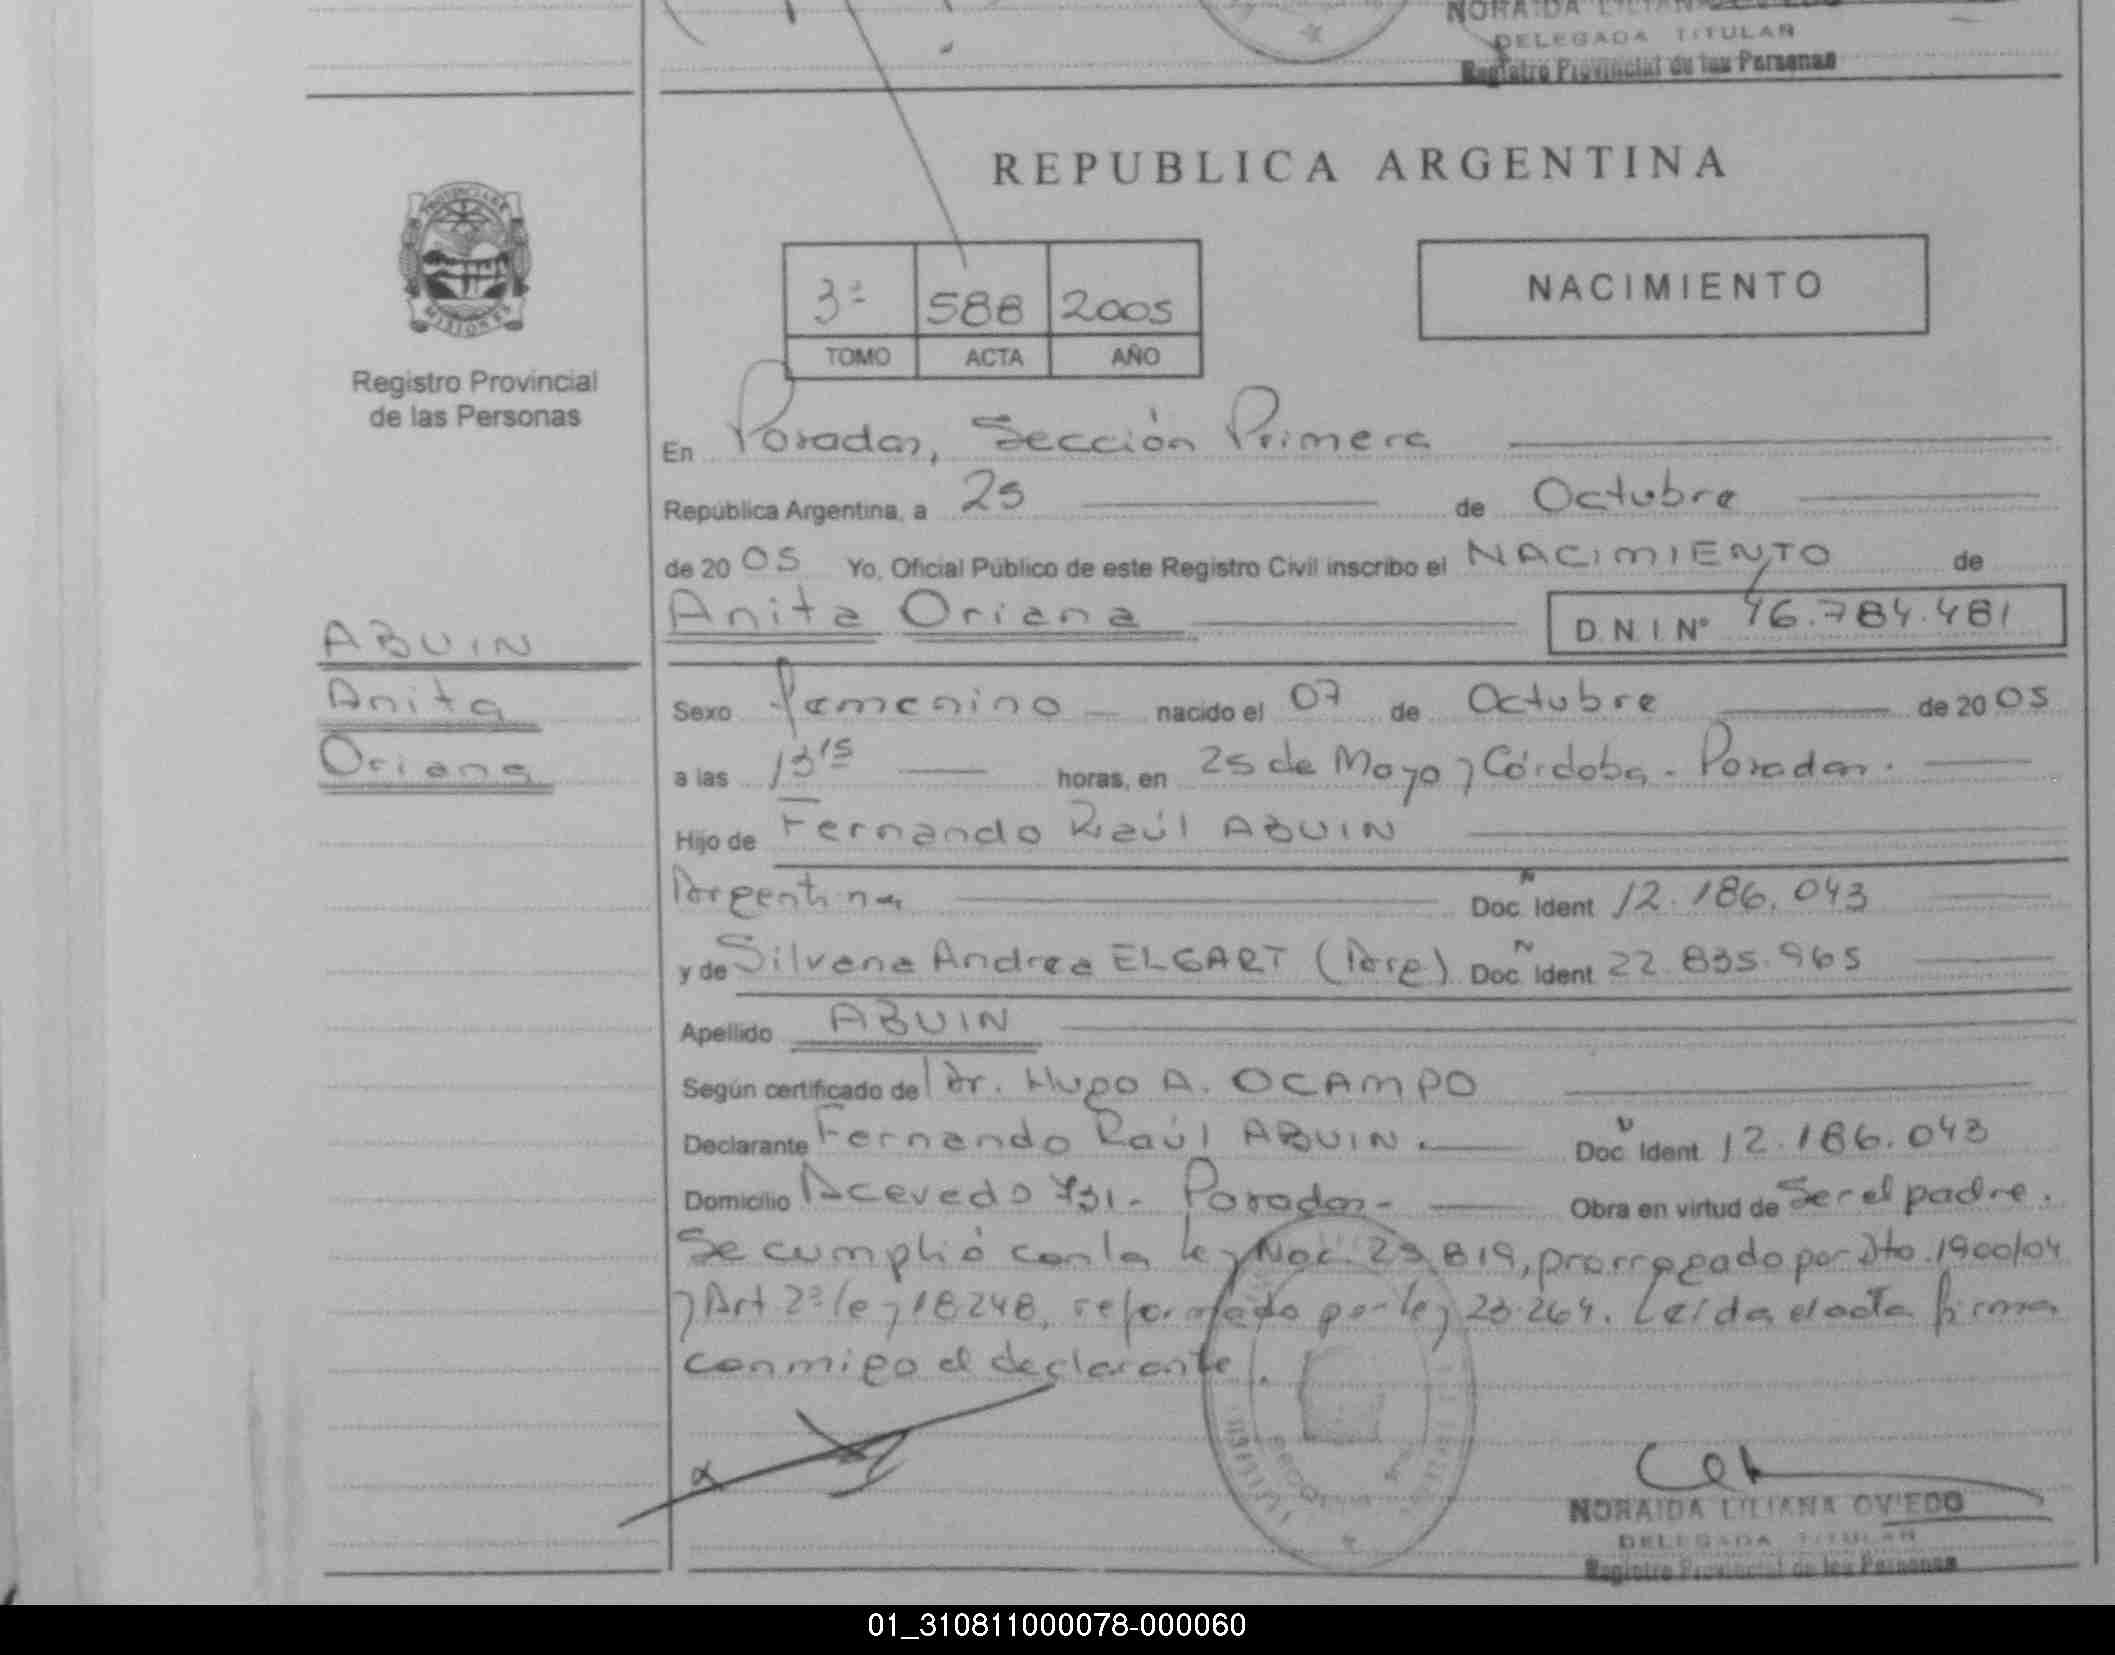 NORAIDA LILIANA OVIEDO
DELEGADA TITULAR
Registro Provincial de las Personas
REPUBLICA ARGENTINA
PROVINCIA DE
MISIONES
Registro Provincial
de las Personas
3ª 588 2005
TOMO ACTA AÑO
NACIMIENTO
En Posadas, Sección Primera
República Argentina, a 25 de Octubre
de 2005 Yo, Oficial Público de este Registro Civil inscribo el NACIMIENTO de
Anita Oriana D.N.I Nº 46.784.481
ABUIN
Anita
Oriana
Sexo Femenino nacido el 07 de Octubre de 2005
a las 13 15 horas, en 25 de Mayo y Córdoba - Posadas.
Hijo de Fernando Raúl ABUIN
Argentina Doc N Ident 12.186.043
y de Silvana Andrea ELGART (Arg) Doc N Ident 22.835.965
Apellido ABUIN
Según certificado de Dr. Hugo A. OCAMPO
Declarante Fernando Raúl ABUIN. Doc N Ident 12.186.043
Domicilio Acevedo 731 - Posadas - Obra en virtud de Ser el padre.
Se cumplió con la ley Nac. 25.819, prorrogado por Dto. 1900/04
y Art. 2º ley 18.248, reformado por ley 23.264. Leída el acta firma
conmigo el declarante.
NORAIDA LILIANA OVIEDO
DELEGADA TITULAR
Registro Provincial de las Personas
01_310811000078-000060